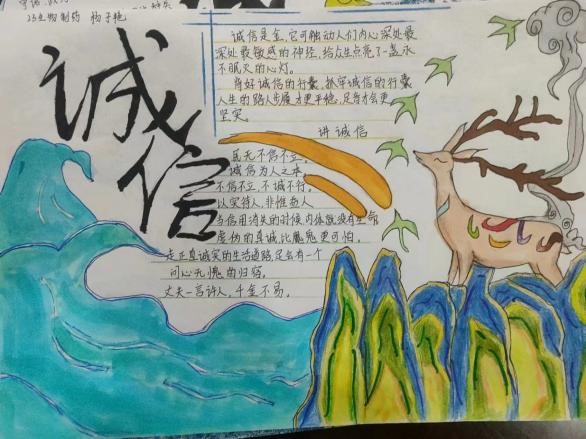 23生物制药 杨子艳
诚信
诚信是金,它可触动人们内心深处最
深处最敏感的神经,给众生点亮了一盏永
不眠灭的心灯。
背好诚信的行囊,抓牢诚信的行囊
人生的路人步履才更平稳,足音才会更
坚实。
讲诚信
民无不信不立。
诚信为人之本。
不信不立,不诚不行。
以实待人,非惟益人
当信用消失的时候,肉体就没有生命
虚伪的真诚,比魔鬼更可怕。
走正真诚实的生活道路,定会有一个
问心无愧的归宿。
丈夫一言许人,千金不易。